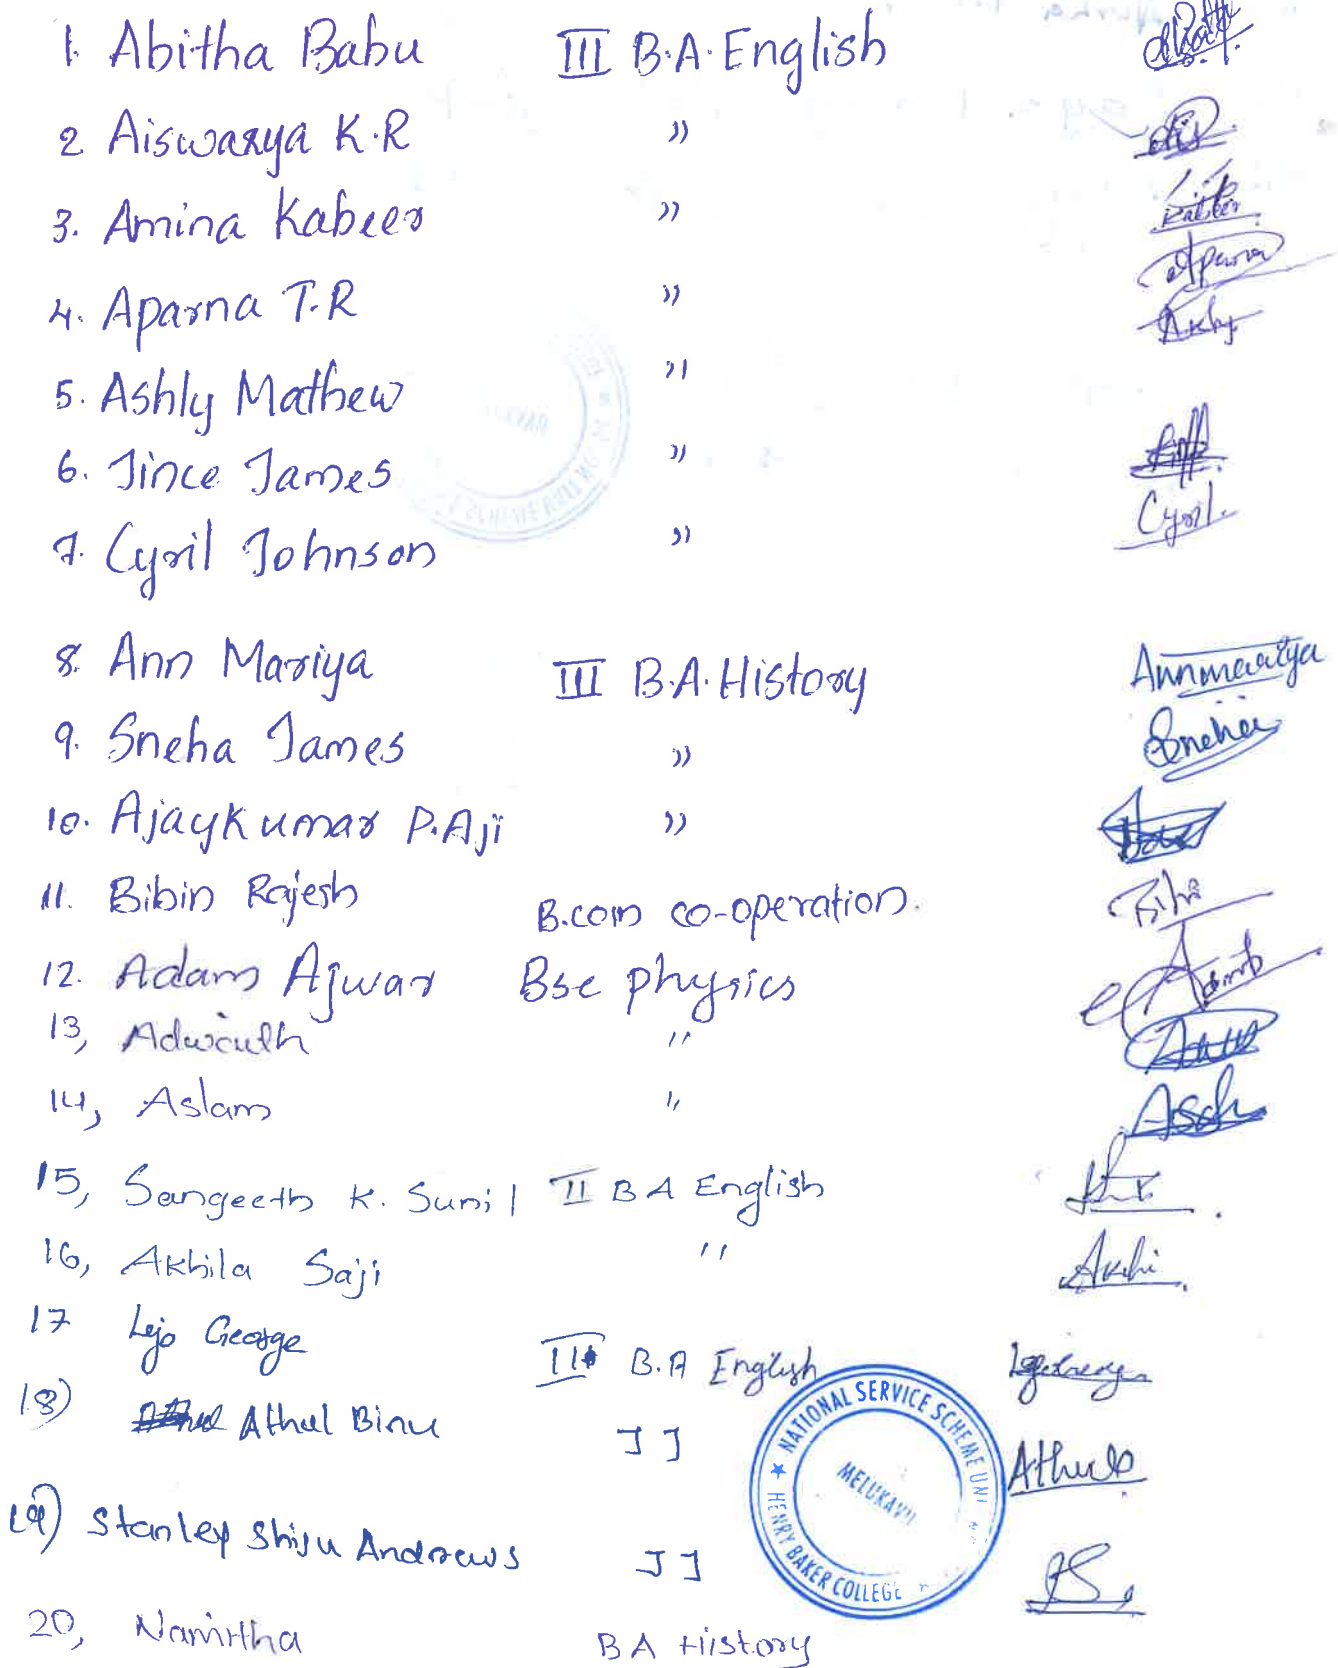 1. Abitha Babu III B.A. English
2 Aiswarya K.R "
3. Amina Kabeer " Kabeer
4. Aparna T.R " Aparna
5. Ashly Mathew "
6. Jince James "
7. Cyril Johnson " Cyril.
8. Ann Mariya III B.A. History Annmariya
9. Sneha James " Sneha
10. Ajaykumar P. Aji "
11. Bibin Rajesh B.com co-operation.
12. Adam Ajwar Bsc physics
13, Adwaith "
14, Aslam "
15, Sangeeth K. Sunil II BA English
16, Akhila Saji " Akhi
17 Lijo George II B.A English
18) Athul Binu " Athul
19) Stanley Shiju Andrews "
20, Namitha BA History
NATIONAL SERVICE SCHEME UNIT
MELUKAVU
HENRY BAKER COLLEGE